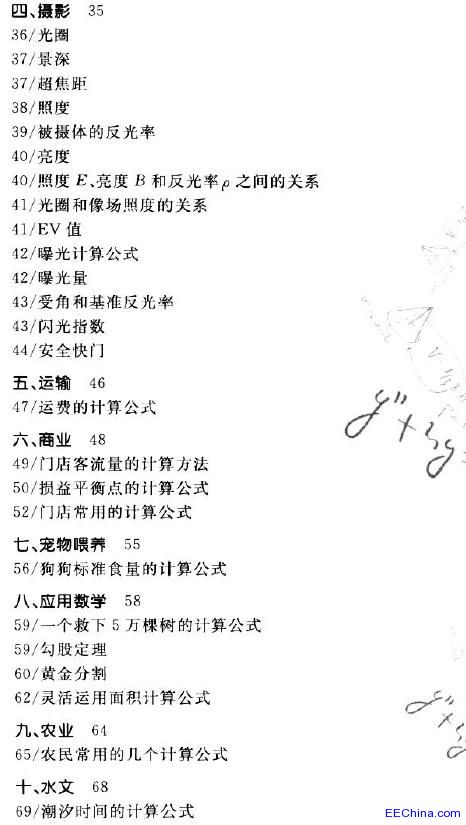 四、摄影 35
36/光圈
37/景深
37/超焦距
38/照度
39/被摄体的反光率
40/亮度
40/照度 E、亮度 B 和反光率 ρ 之间的关系
41/光圈和像场照度的关系
41/EV 值
42/曝光计算公式
42/曝光量
43/受角和基准反光率
43/闪光指数
44/安全快门
五、运输 46
47/运费的计算公式
六、商业 48
49/门店客流量的计算方法
50/损益平衡点的计算公式
52/门店常用的计算公式
七、宠物喂养 55
56/狗狗标准食量的计算公式
八、应用数学 58
59/一个救下 5 万棵树的计算公式
59/勾股定理
60/黄金分割
62/灵活运用面积计算公式
九、农业 64
65/农民常用的几个计算公式
十、水文 68
69/潮汐时间的计算公式
EEChina.com